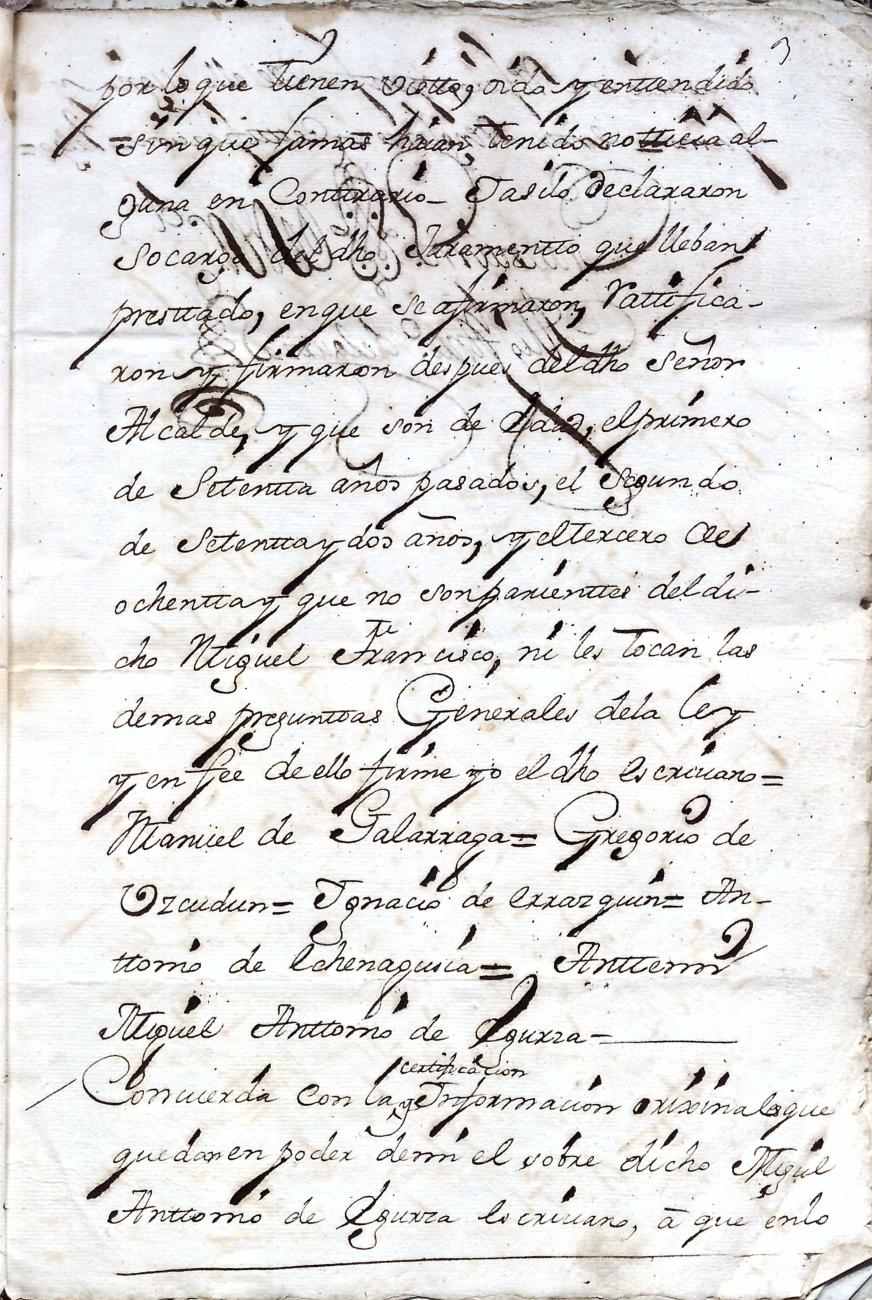 3
por lo que tienen vistto, oido y enttendido
sin que jamas haian tenido notticia al-
guna en Conttrario_ Y asi lo declararon
so cargo del dho Juramentto que lleban
presttado, en que se afirmaron, Rattifica-
ron y firmaron despues del dho Señor
Alcalde, y que son de edad, el primero
de Setentta años pasados, el segundo
de Setentta y dos años, y el tercero de
ochentta y que no son parienttes del di-
cho Miguel Francisco, ni les tocan las
demas pregunttas Generales de la ley
y en fee de ello firme yo el dho escrivano=
Manuel de Galarraga= Gregorio de
Uzcudun= Ignacio de errazquin= An-
ttonio de echenagusia= Anttemi
Miguel Anttonio de Egurza=
certificacion
Concuerda con la y Informacion orixinales que
quedan en poder de mi el sobre dicho Miguel
Anttonio de Egurza escrivano, à que en lo